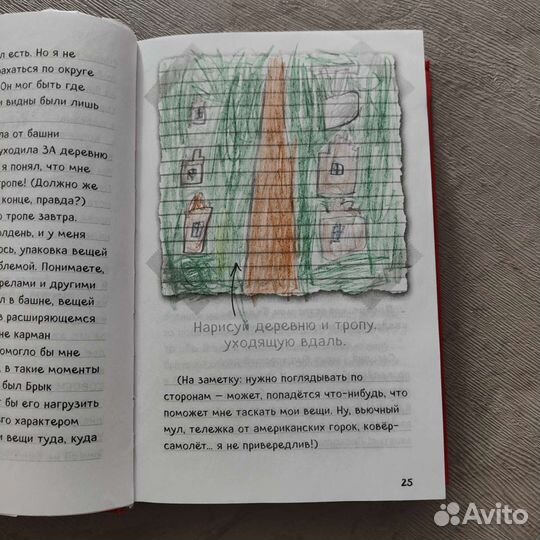 л есть. Но я не
рахаться по округе
Он мог быть где
видны были лишь
ла от башни
уходила ЗА деревню
я понял, что мне
тропе! (Должно же
конце, правда?)
о тропе завтра.
олдень, и у меня
ось, упаковка вещей
блемой. Понимаете,
релами и другими
л в башне, вещей
в расширяющемся
не карман
омогло бы мне
, в такие моменты
был Брык
бы его нагрузить
го характером
и вещи туда, куда
Нарисуй деревню и тропу,
уходящую вдаль.
(На заметку: нужно поглядывать по
сторонам – может, попадётся что-нибудь, что
поможет мне таскать мои вещи. Ну, вьючный
мул, тележка от американских горок, ковёр-
самолёт... я не привередлив!)
25
Avito